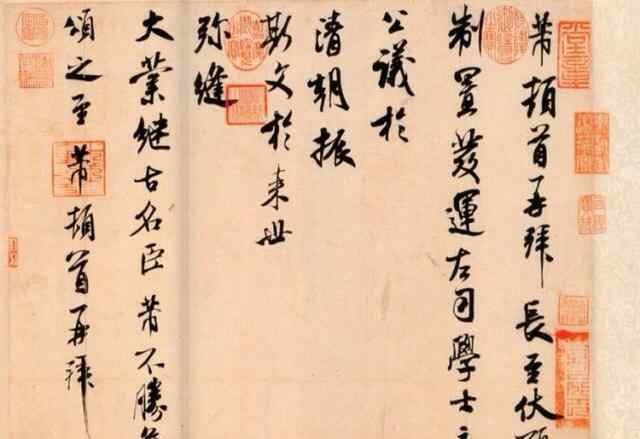 芾頓首再拜長至伏
制置發運左司學士
公議於
清朝振
斯文於来世
弥縫
大業继古名臣芾不勝
頌之至芾頓首再拜